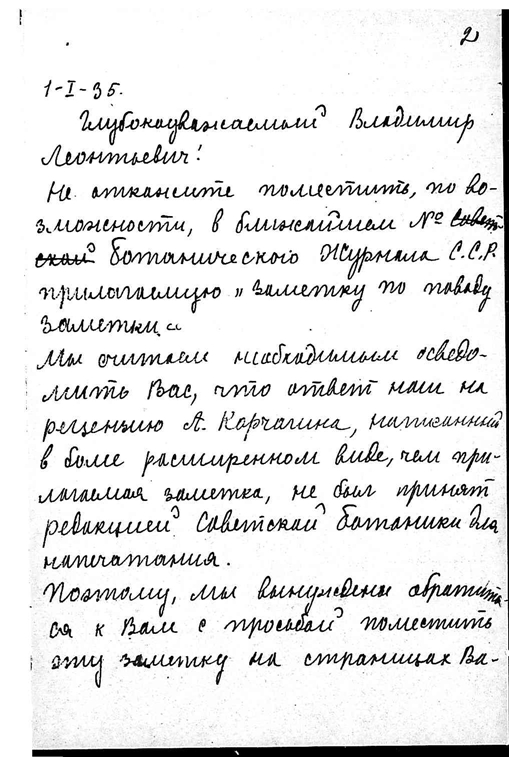 2
1-I-35.
Глубокоуважаемый Владимир
Леонтьевич!
Не откажите поместить, по во-
зможности, в ближайшем № Совет-
ской Ботанического Журнала С.С.Р.
прилагаемую „Заметку по поводу
заметки“
Мы считаем необходимым осведо-
мить Вас, что ответ наш на
рецензию А. Корчагина, написанный
в более расширенном виде, чем при-
лагаемая заметка, не был принят
редакцией Советской Ботаники для
напечатания.
Поэтому, мы вынуждены обратить-
ся к Вам с просьбой поместить
эту заметку на страницах Ва-